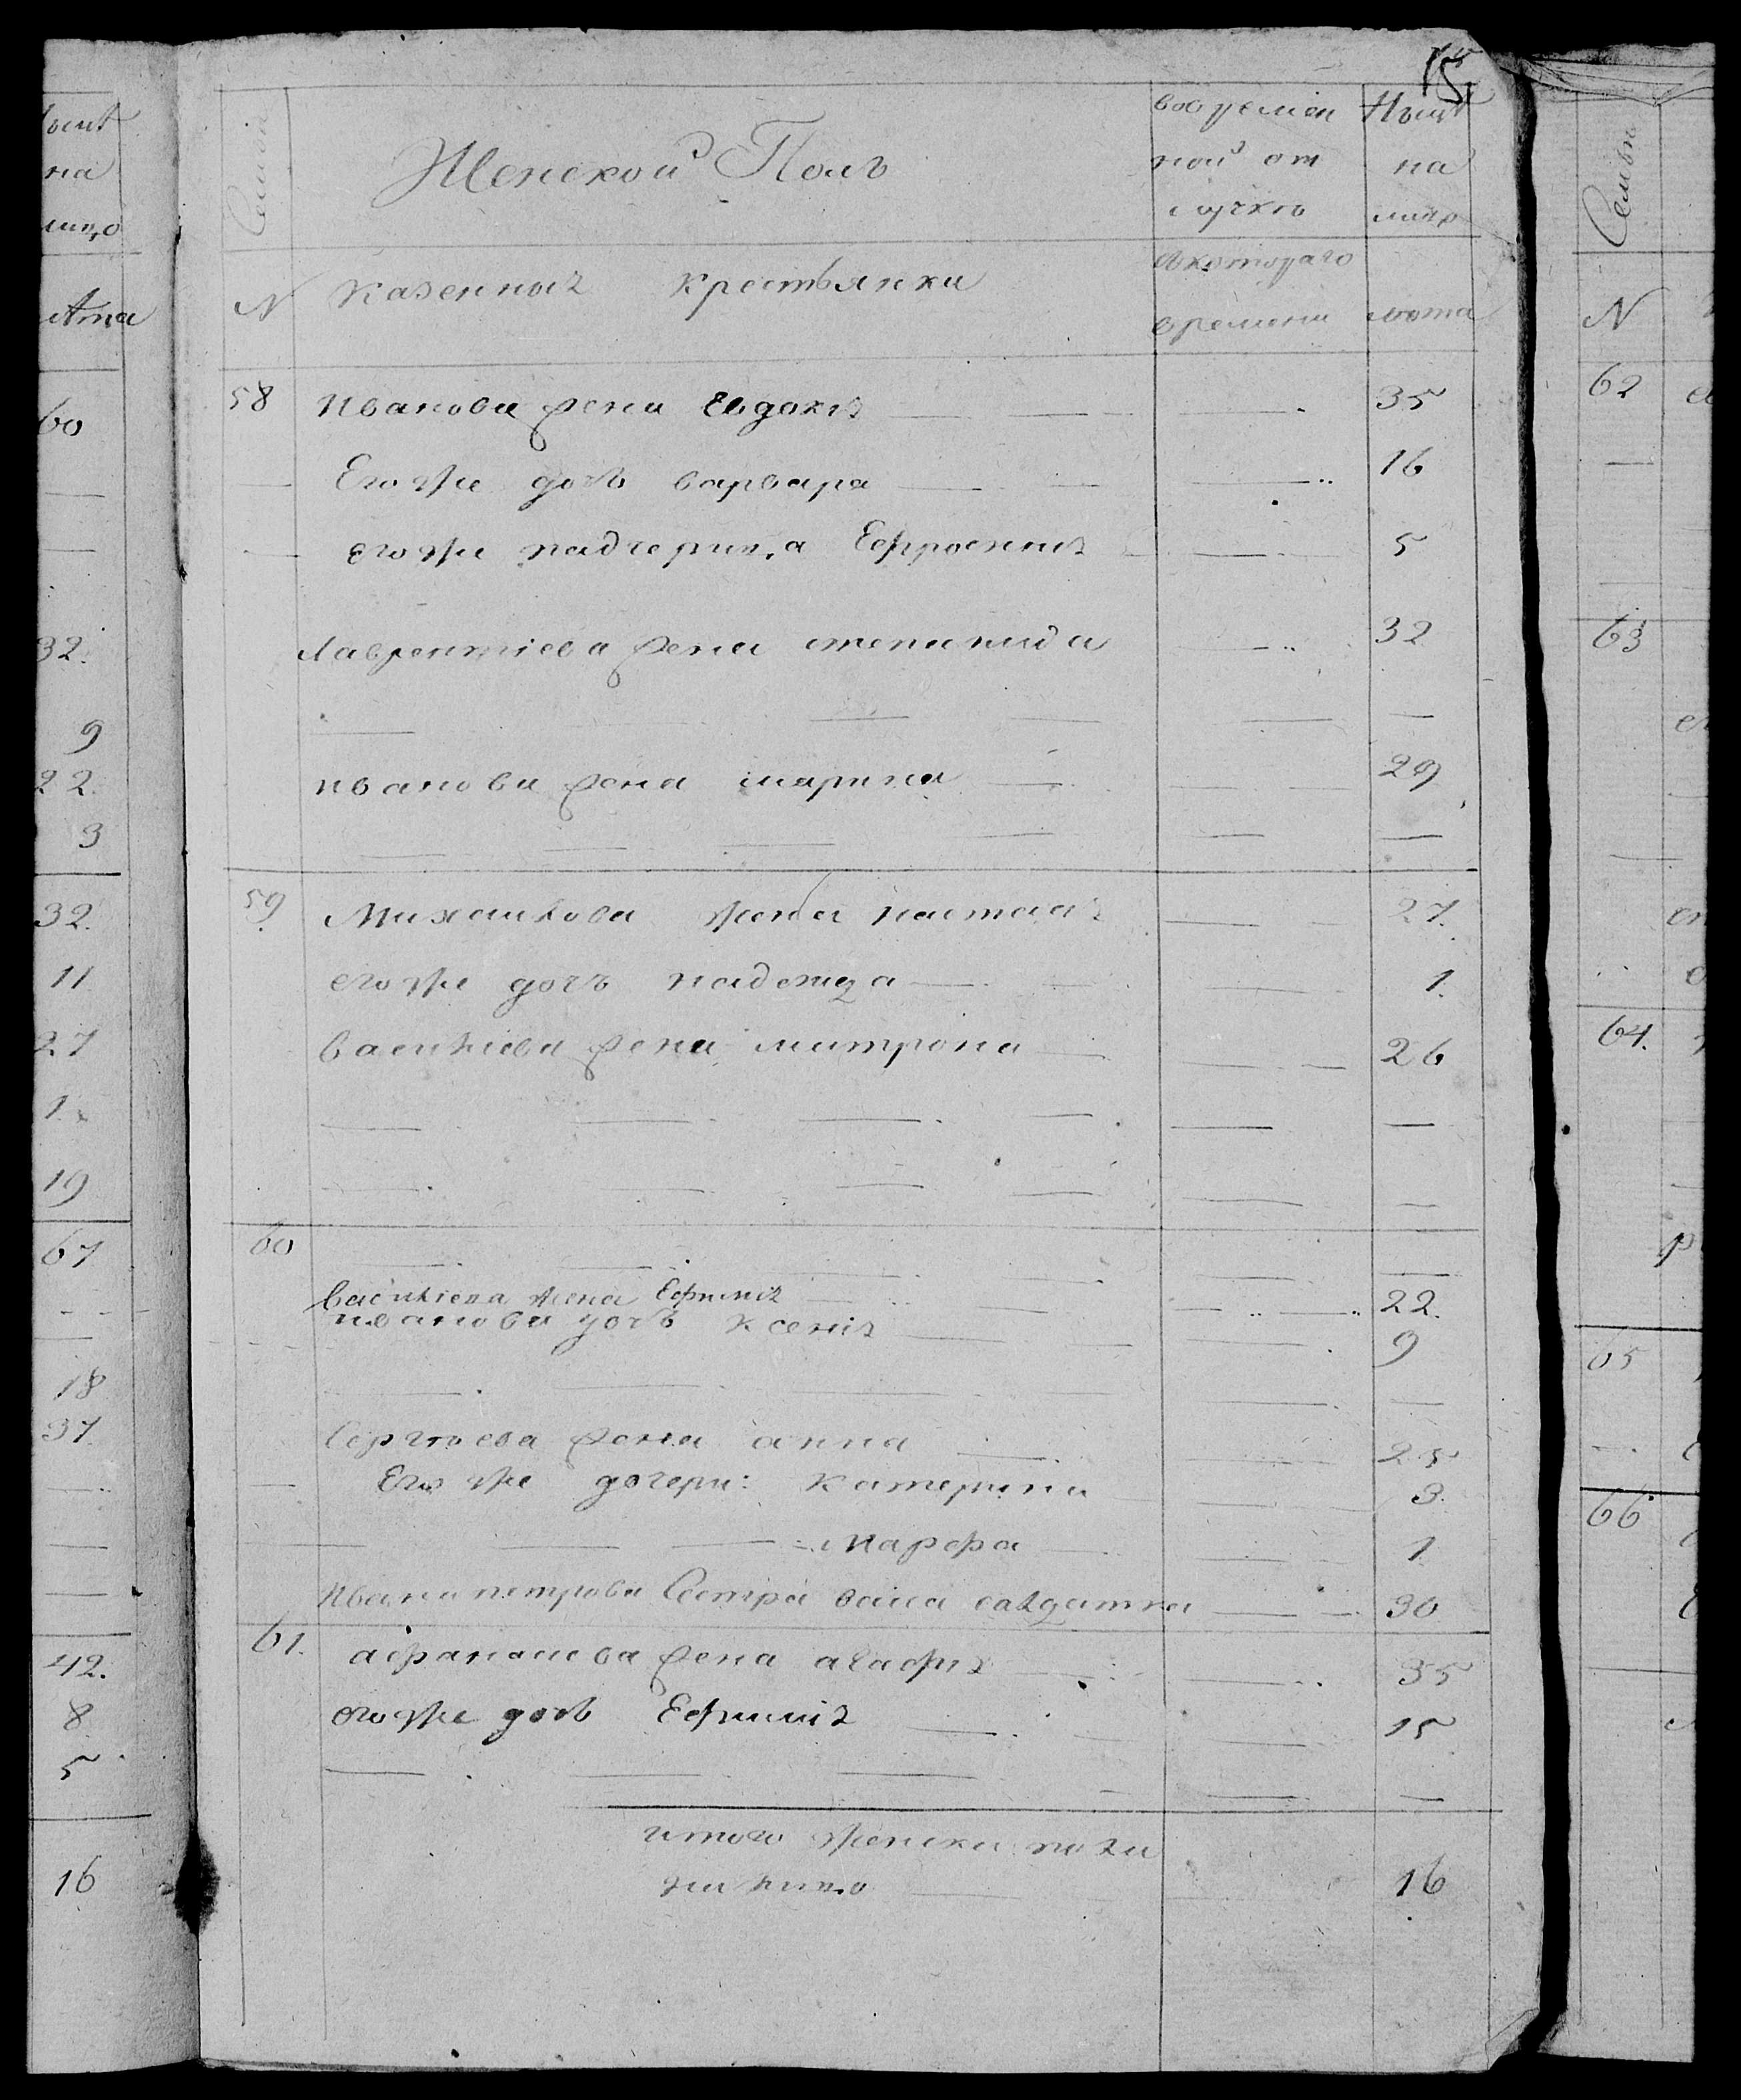 15
Семьи
Женской Полъ
вовремян
ной от
лучкѣ
Нынѣ
на
лицо
N
Казенныя крестьянки
скотораго
времени
лѣта
58 Иванова жена Евдокия 35
Егоже дочь варвара 16
егоже падчерица Ефросиния 5
Лаврентиева жена степанида 32
иванова жена марина 29
59 Михаилова жена настасия 27.
егоже дочь надежда 1.
василиева жена митрона 26
60
василиева жена Ефимия 22.
иванова дочь ксения 9
Сергѣева жена анна 25
Егоже дочери: катерина 3.
марфа 1
Ивана петрова Сестра васа салдатка 30
61. афанасиева жена агафия 35
егоже дочь Ефимия 15
итого женска пола
на лицо 16
60
32.
9
22.
3
32.
11
27
1.
19
67
18
37.
42.
8
5
16
Семьи
N
62
63
64.
65
66